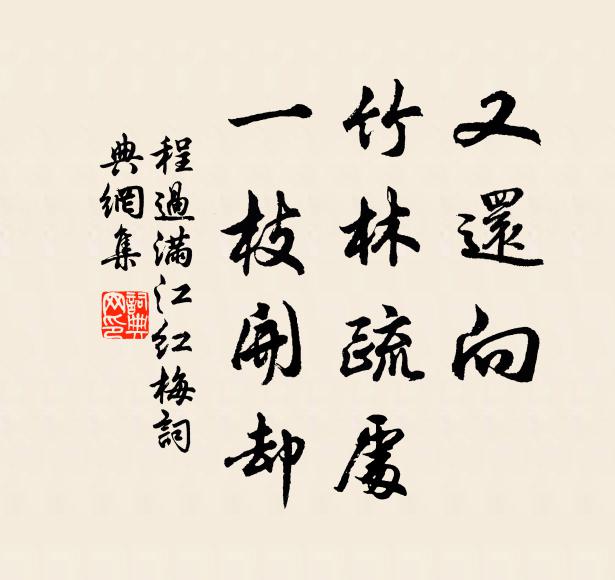 又還向
竹林疏處
一枝開却
程過滿江紅梅詞
典網集
詞典
网印